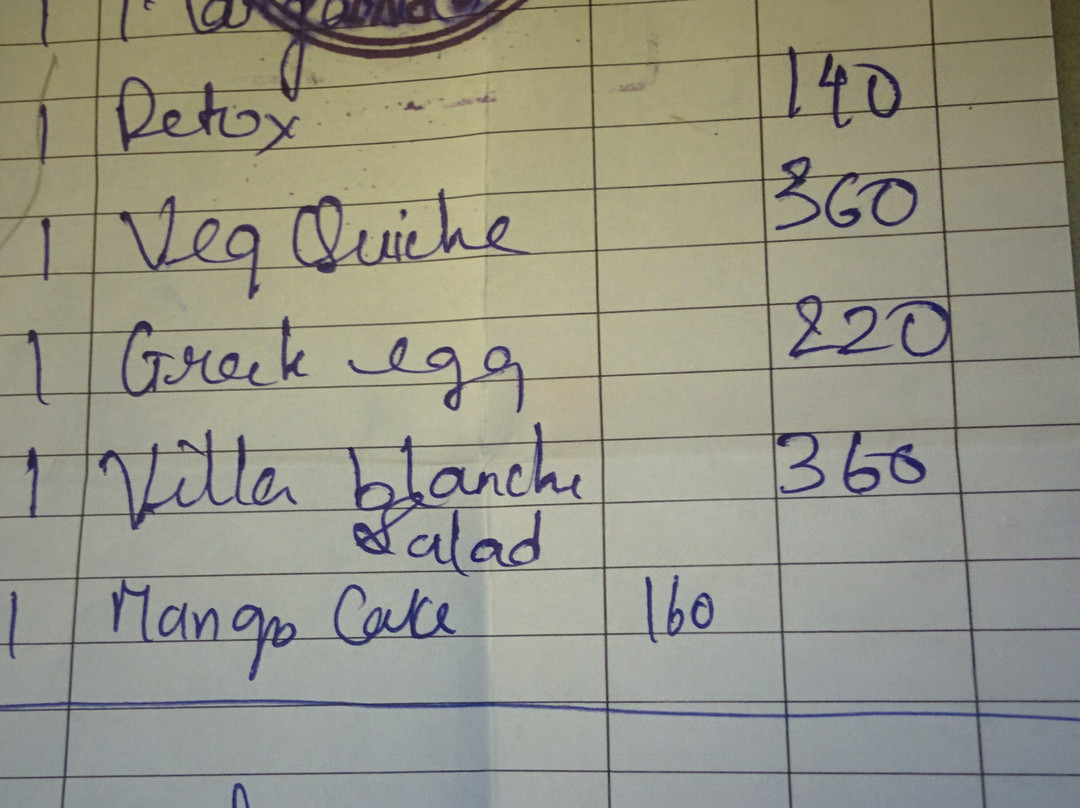 1 Detox 140
1 Veg Quiche 360
1 Greek egg 220
1 Villa blanche 360
Salad
1 Mango Cake 160